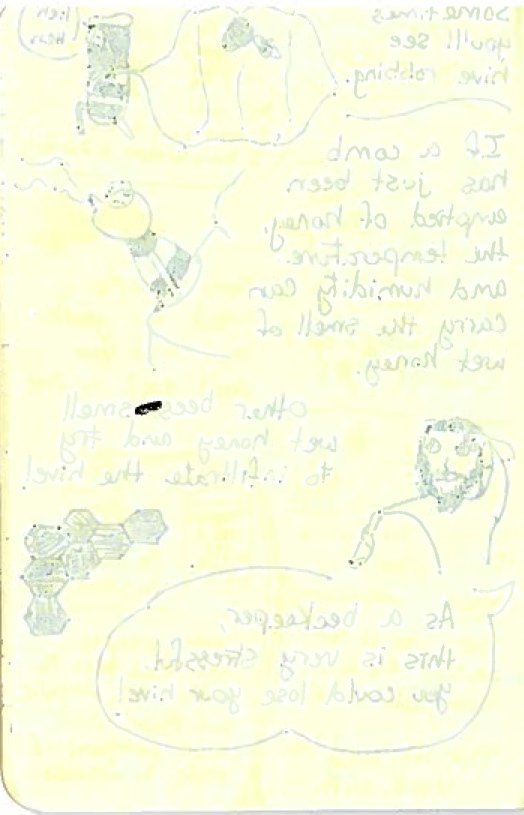 heh
heh
sometimes
you'll see
hive robbing.
If a comb
has just been
emptied of honey,
the temperature
and humidity can
carry the smell of
wet honey.
other bees smell
wet honey and try
to infiltrate the hive!
As a beekeeper,
this is very stressful.
you could lose your hive!